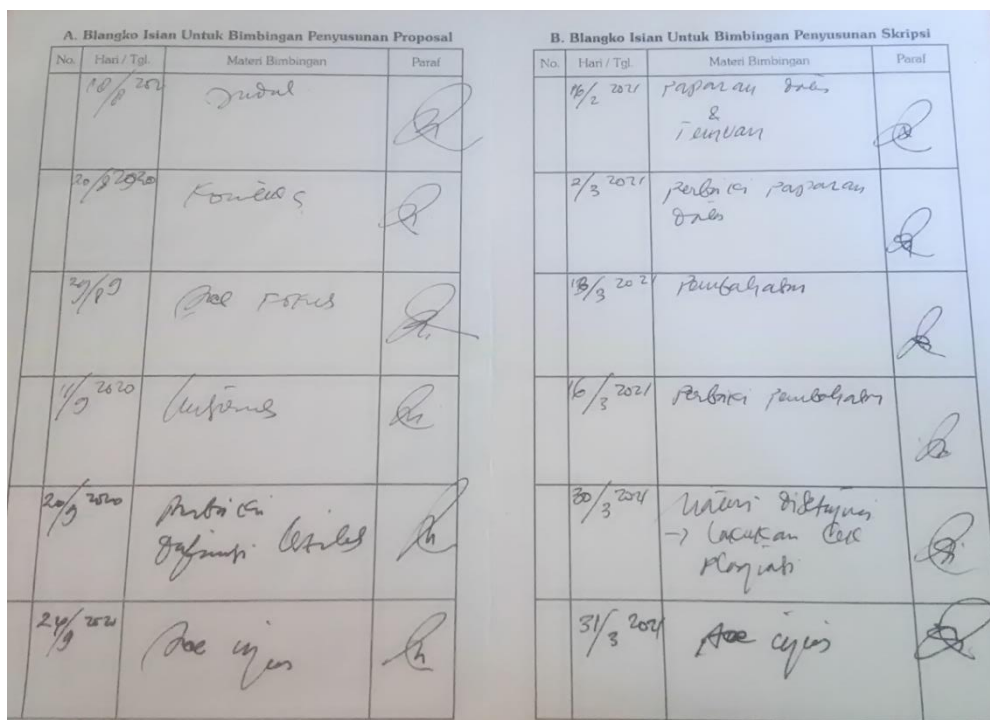 A. Blangko Isian Untuk Bimbingan Penyusunan Proposal
No. Hari / Tgl. Materi Bimbingan Paraf
Judul
20/8 2020 Konteks
Acc Fokus
11/9 2020
20/9 2020 Perbaiki
24/9 2020 Acc ujian
B. Blangko Isian Untuk Bimbingan Penyusunan Skripsi
No. Hari / Tgl. Materi Bimbingan Paraf
16/2 2021 Paparan Data
&
Temuan
2/3 2021 Perbaiki Paparan
Data
13/3 2021 Pembahasan
16/3 2021 Perbaiki Pembahasan
30/3 2021 Materi disetujui
-> Lakukan Cek
Plagiasi
31/3 2021 Acc ujian